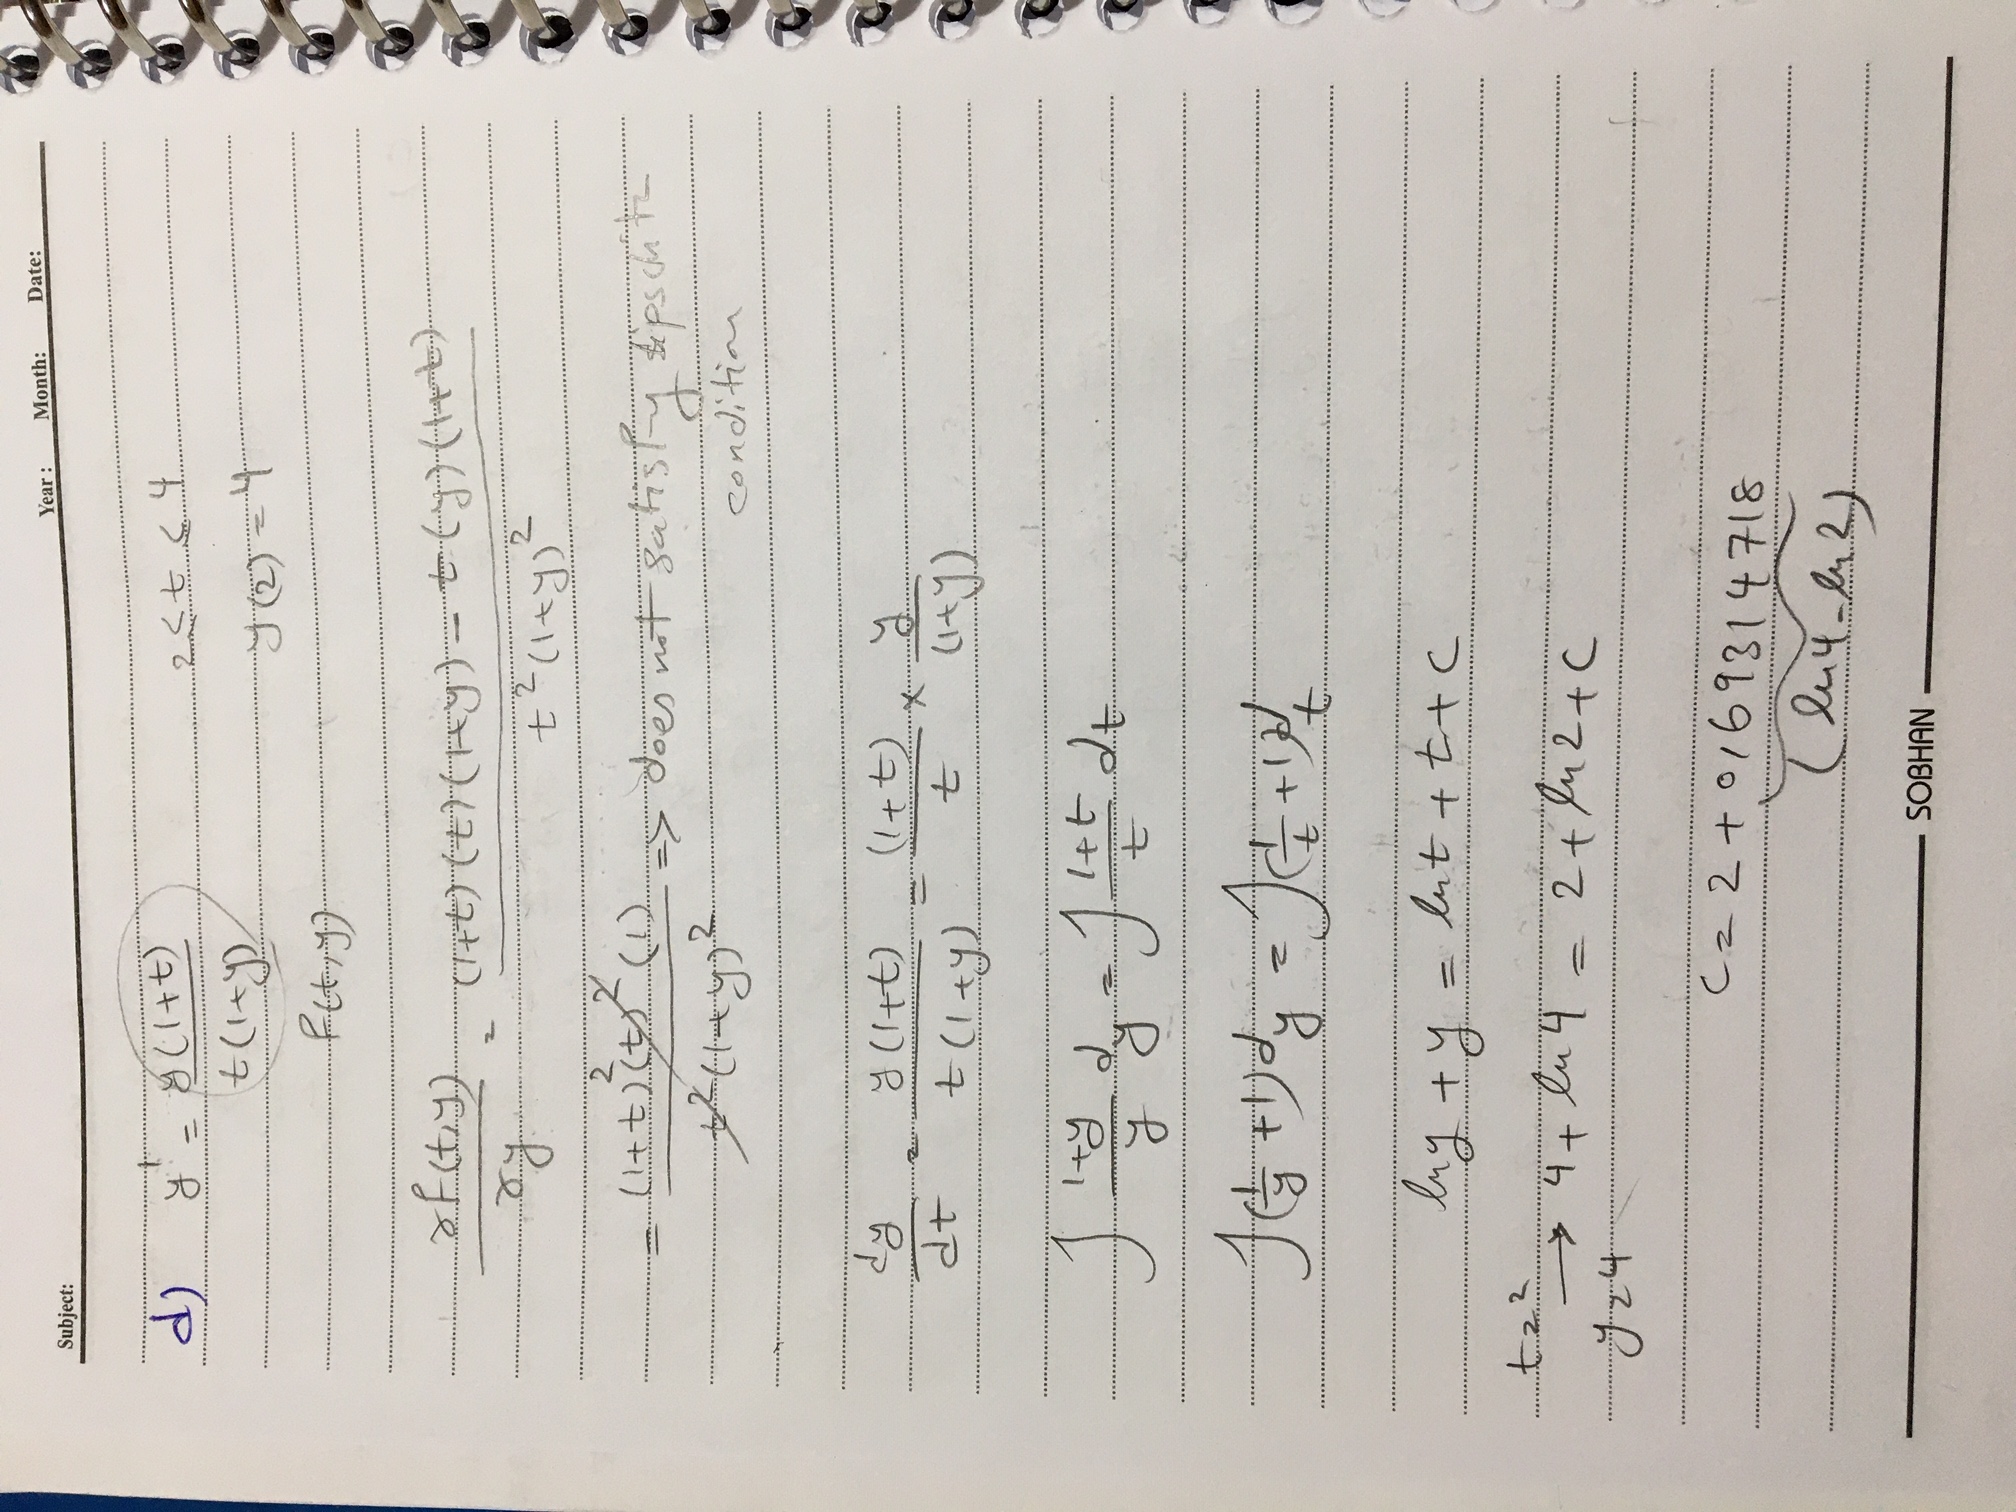 Subject: Year : Month: Date:
d) y' = y(1+t) / t(1+y) 2 ≤ t ≤ 4
y(2) = 4
f(t,y)
∂f(t,y) / ∂y = (1+t)(t)(1+y) - t(y)(1+t) / t²(1+y)²
= (1+t)²(t)²(1) / t²(1+y)² => does not satisfy lipschitz
condition
dy/dt = y(1+t) / t(1+y) = (1+t)/t × y/(1+y)
∫ 1+y/y dy = ∫ 1+t/t dt
∫(1/y +1)dy = ∫(1/t +1)dt
lny + y = lnt + t + c
t=2
→ 4 + ln4 = 2 + ln2 + c
y=4
c = 2 + 0,69314718
(ln4-ln2)
SOBHAN